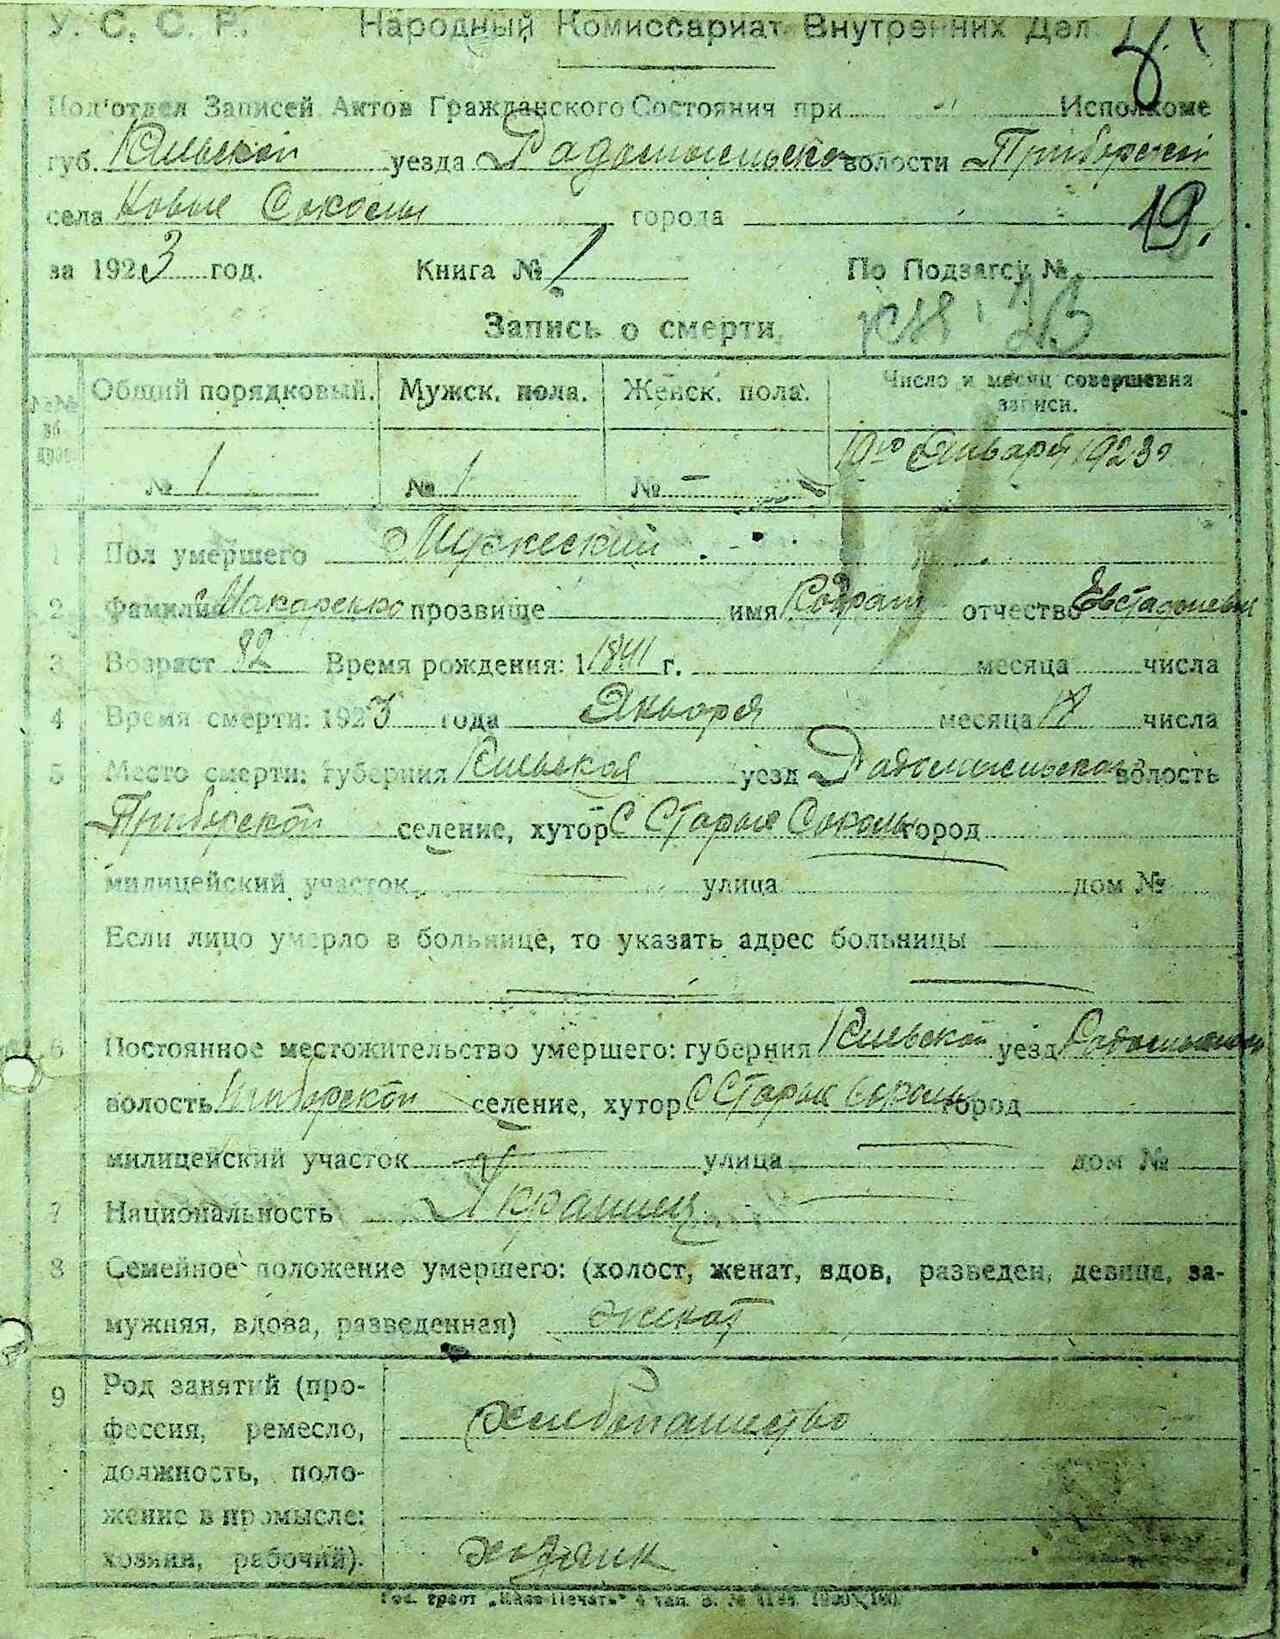 У. С. С. Р. Народный Комиссариат Внутренних Дел
Под'отдел Записей Актов Гражданского Состояния при Исполкоме
губ. Киевской уезда Радомысльского волости Приборской
села Новые Соколы города
19.
за 1923 год. Книга № 1 По Подзагсу №
Запись о смерти.
Общий порядковый. Мужск. пола. Женск. пола. Число и месяц совершения
записи.
№ 1 № 1 № – 19го Января 1923г
1 Пол умершего Мужеский
2 Фамилия Макаренко прозвище имя Кодрат отчество
3 Возраст 82 Время рождения: 1 1841 г. месяца числа
4 Время смерти: 1923 года Января месяца 18 числа
5 Место смерти: губерния Киевская уезд Радомысльского волость
Приборской селение, хутор С Старые Соколы город
милицейский участок улица дом №
Если лицо умерло в больнице, то указать адрес больницы
6 Постоянное местожительство умершего: губерния Киевской уезд
волость Приборской селение, хутор С Старые Соколы город
милицейский участок улица дом №
7 Национальность Украинец
8 Семейное положение умершего: (холост, женат, вдов, разведен, девица, за-
мужняя, вдова, разведенная) женат
9 Род занятий (про-
фессия, ремесло, хлебопашество
должность, поло-
жение в промысле:
хозяин, рабочий). хозяик